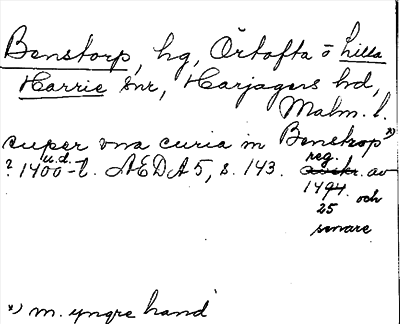 Benstorp, hg, Örtofta o Lilla
Harrie snr, Harjagers hd,
Malm. l.
super una curia in Benstrop *)
? 1400-t. u.d. AEDA 5, s. 143. reg. av
1494 och
25
senare
*) m. yngre hand